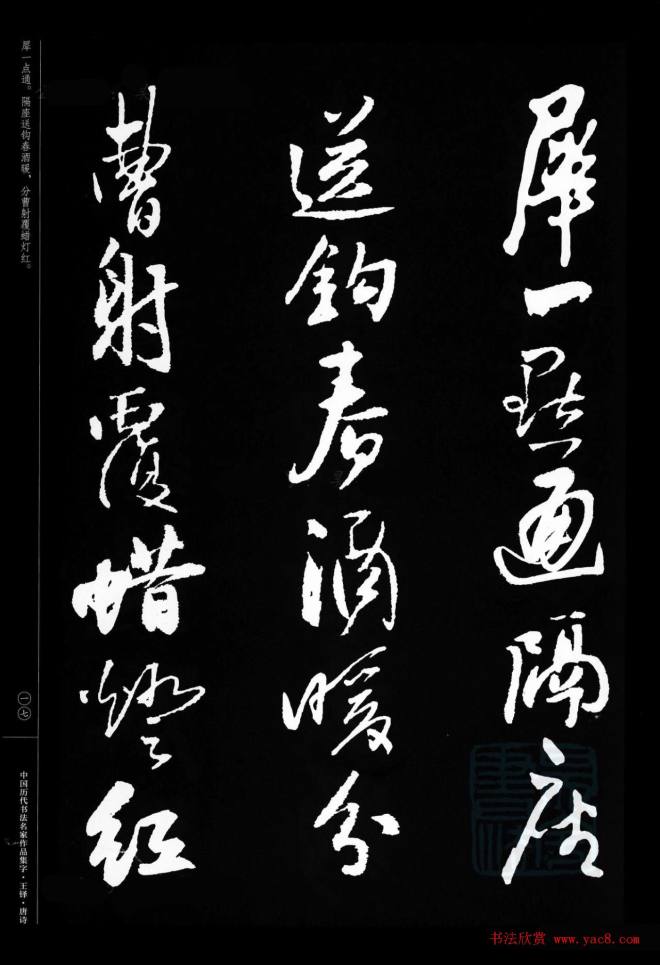 犀一點通隔座
送鈎春酒暖分
曹射覆蜡燈紅
犀一点通。隔座送钩春酒暖，分曹射覆蜡灯红。
一七
中国历代书法名家作品集字·王铎·唐诗
书法欣赏 www.yac8.com